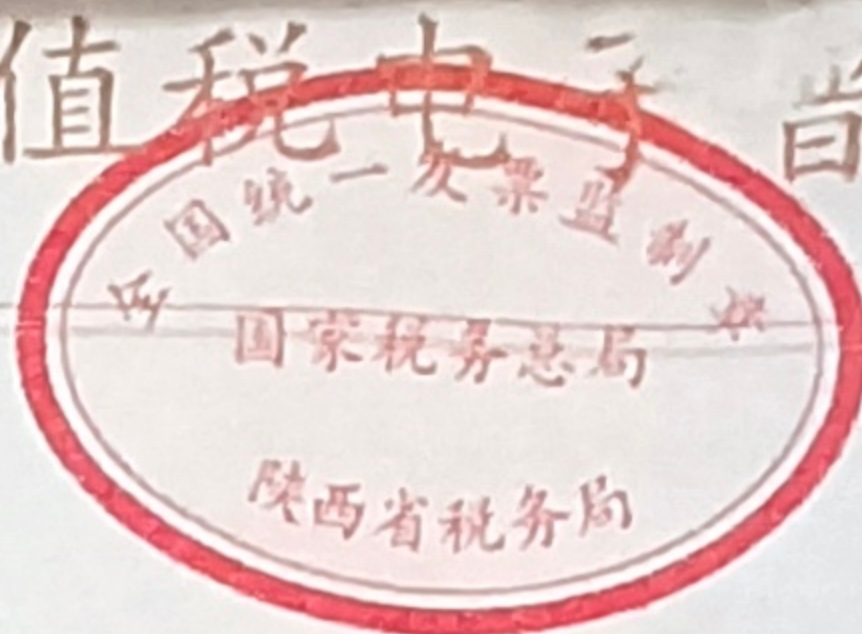 值税电子普
全国统一发票监制章
国家税务总局
陕西省税务局